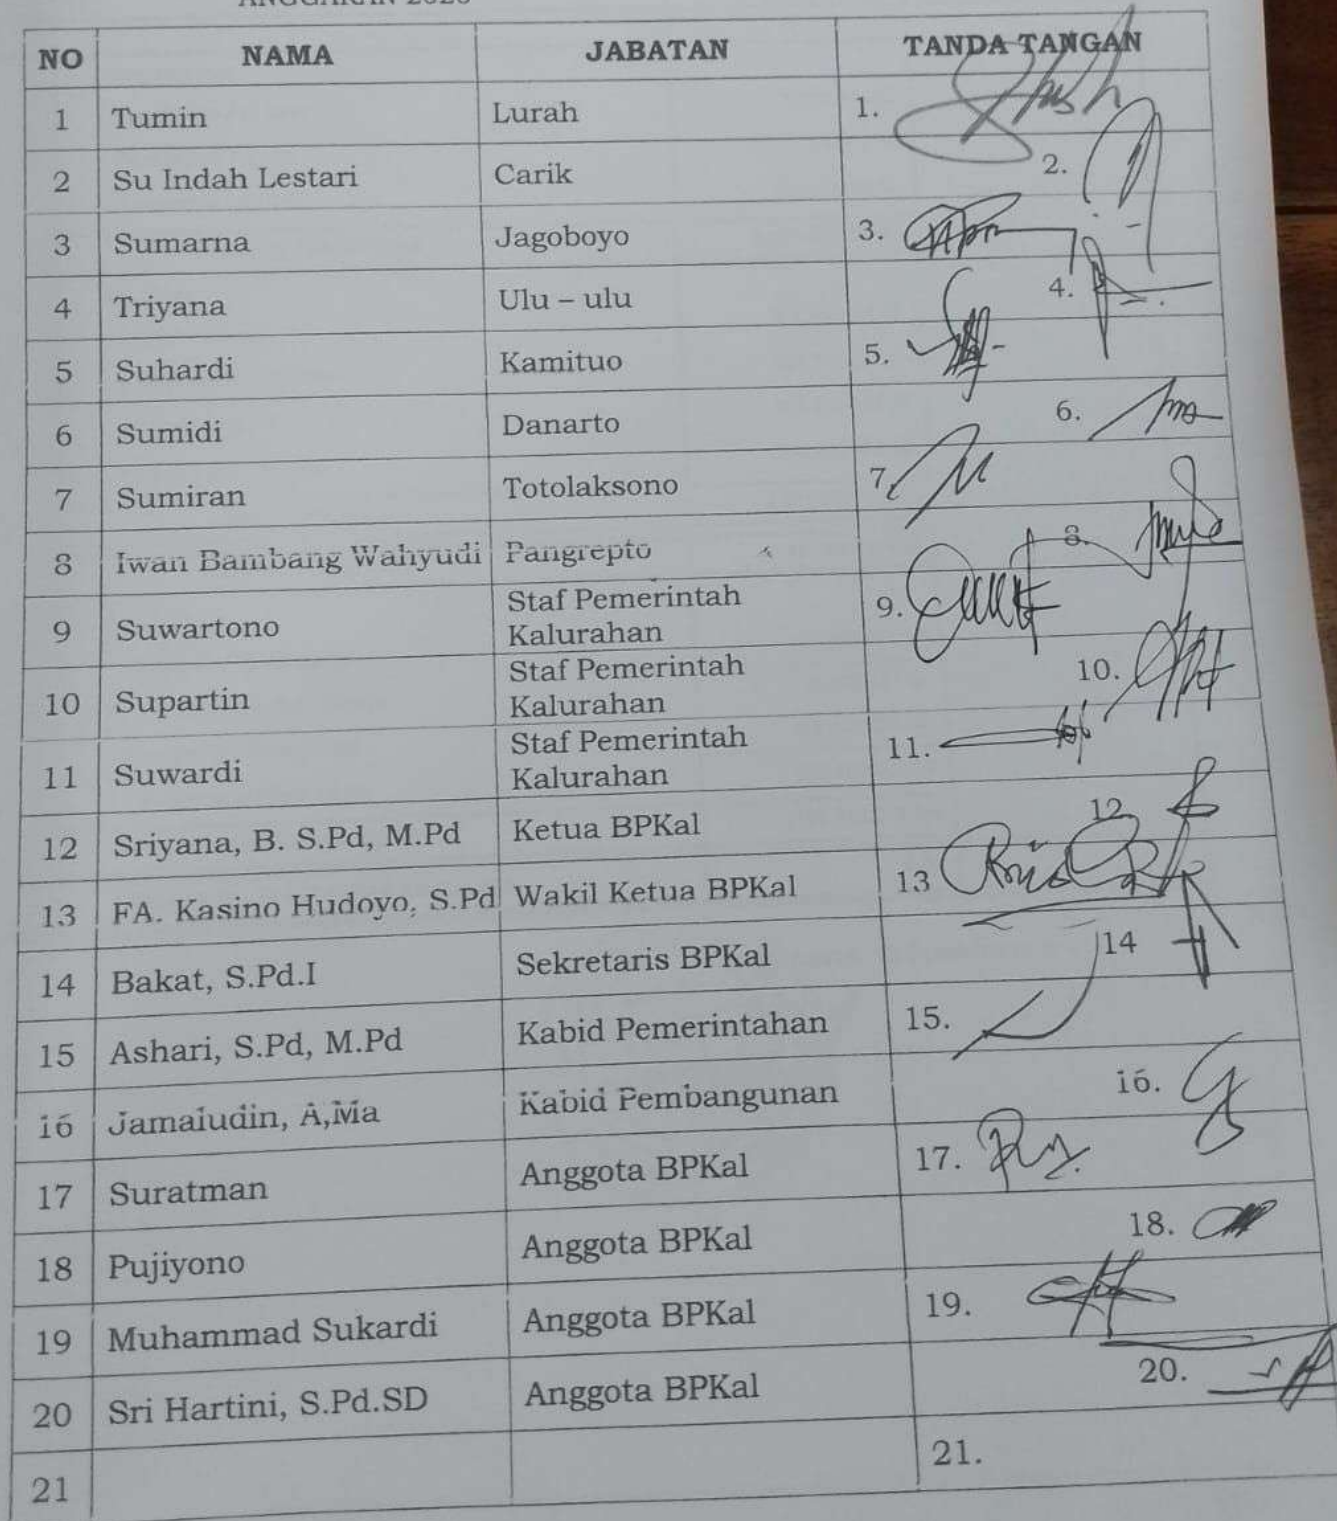 NO NAMA JABATAN TANDA TANGAN
1 Tumin Lurah 1.
2 Su Indah Lestari Carik 2.
3 Sumarna Jagoboyo 3.
4 Triyana Ulu – ulu 4.
5 Suhardi Kamituo 5.
6 Sumidi Danarto 6.
7 Sumiran Totolaksono 7.
8 Iwan Bambang Wahyudi Pangrepto 8.
9 Suwartono Staf Pemerintah Kalurahan 9.
10 Supartin Staf Pemerintah Kalurahan 10.
11 Suwardi Staf Pemerintah Kalurahan 11.
12 Sriyana, B. S.Pd, M.Pd Ketua BPKal 12.
13 FA. Kasino Hudoyo, S.Pd Wakil Ketua BPKal 13
14 Bakat, S.Pd.I Sekretaris BPKal 14
15 Ashari, S.Pd, M.Pd Kabid Pemerintahan 15.
16 Jamaludin, A,Ma Kabid Pembangunan 16.
17 Suratman Anggota BPKal 17.
18 Pujiyono Anggota BPKal 18.
19 Muhammad Sukardi Anggota BPKal 19.
20 Sri Hartini, S.Pd.SD Anggota BPKal 20.
21 21.